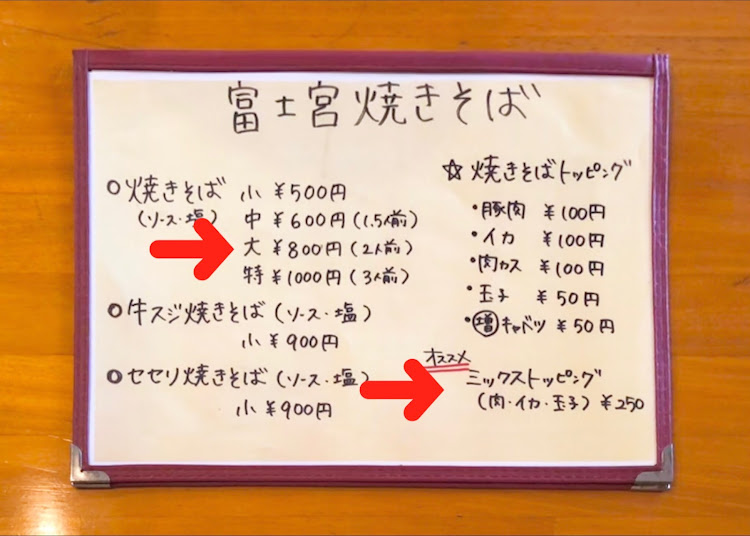 富士宮焼きそば
○焼きそば 小 ¥500円
(ソース・塩) 中 ¥600円(1.5人前)
大 ¥800円(2人前)
特 ¥1000円(3人前)
○牛スジ焼きそば(ソース・塩)
小 ¥900円
○セセリ焼きそば(ソース・塩)
小 ¥900円
☆焼きそばトッピング
・豚肉 ¥100円
・イカ ¥100円
・肉カス ¥100円
・玉子 ¥50円
・増キャベツ ¥50円
オススメ
ミックストッピング
(肉・イカ・玉子) ¥250